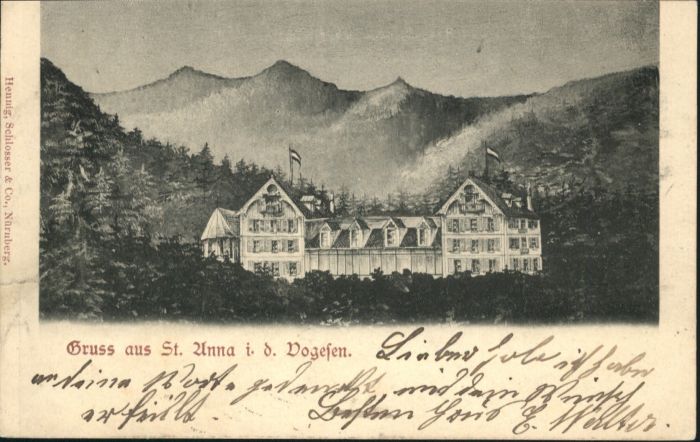 Hennig, Schlosser & Co., Nürnberg.
Gruss aus St. Anna i. d. Vogesen.
Lieber habe ich aber
an deine Worte gedacht und dein Wunsch
erfüllt. Besten Gruss E. Walter.